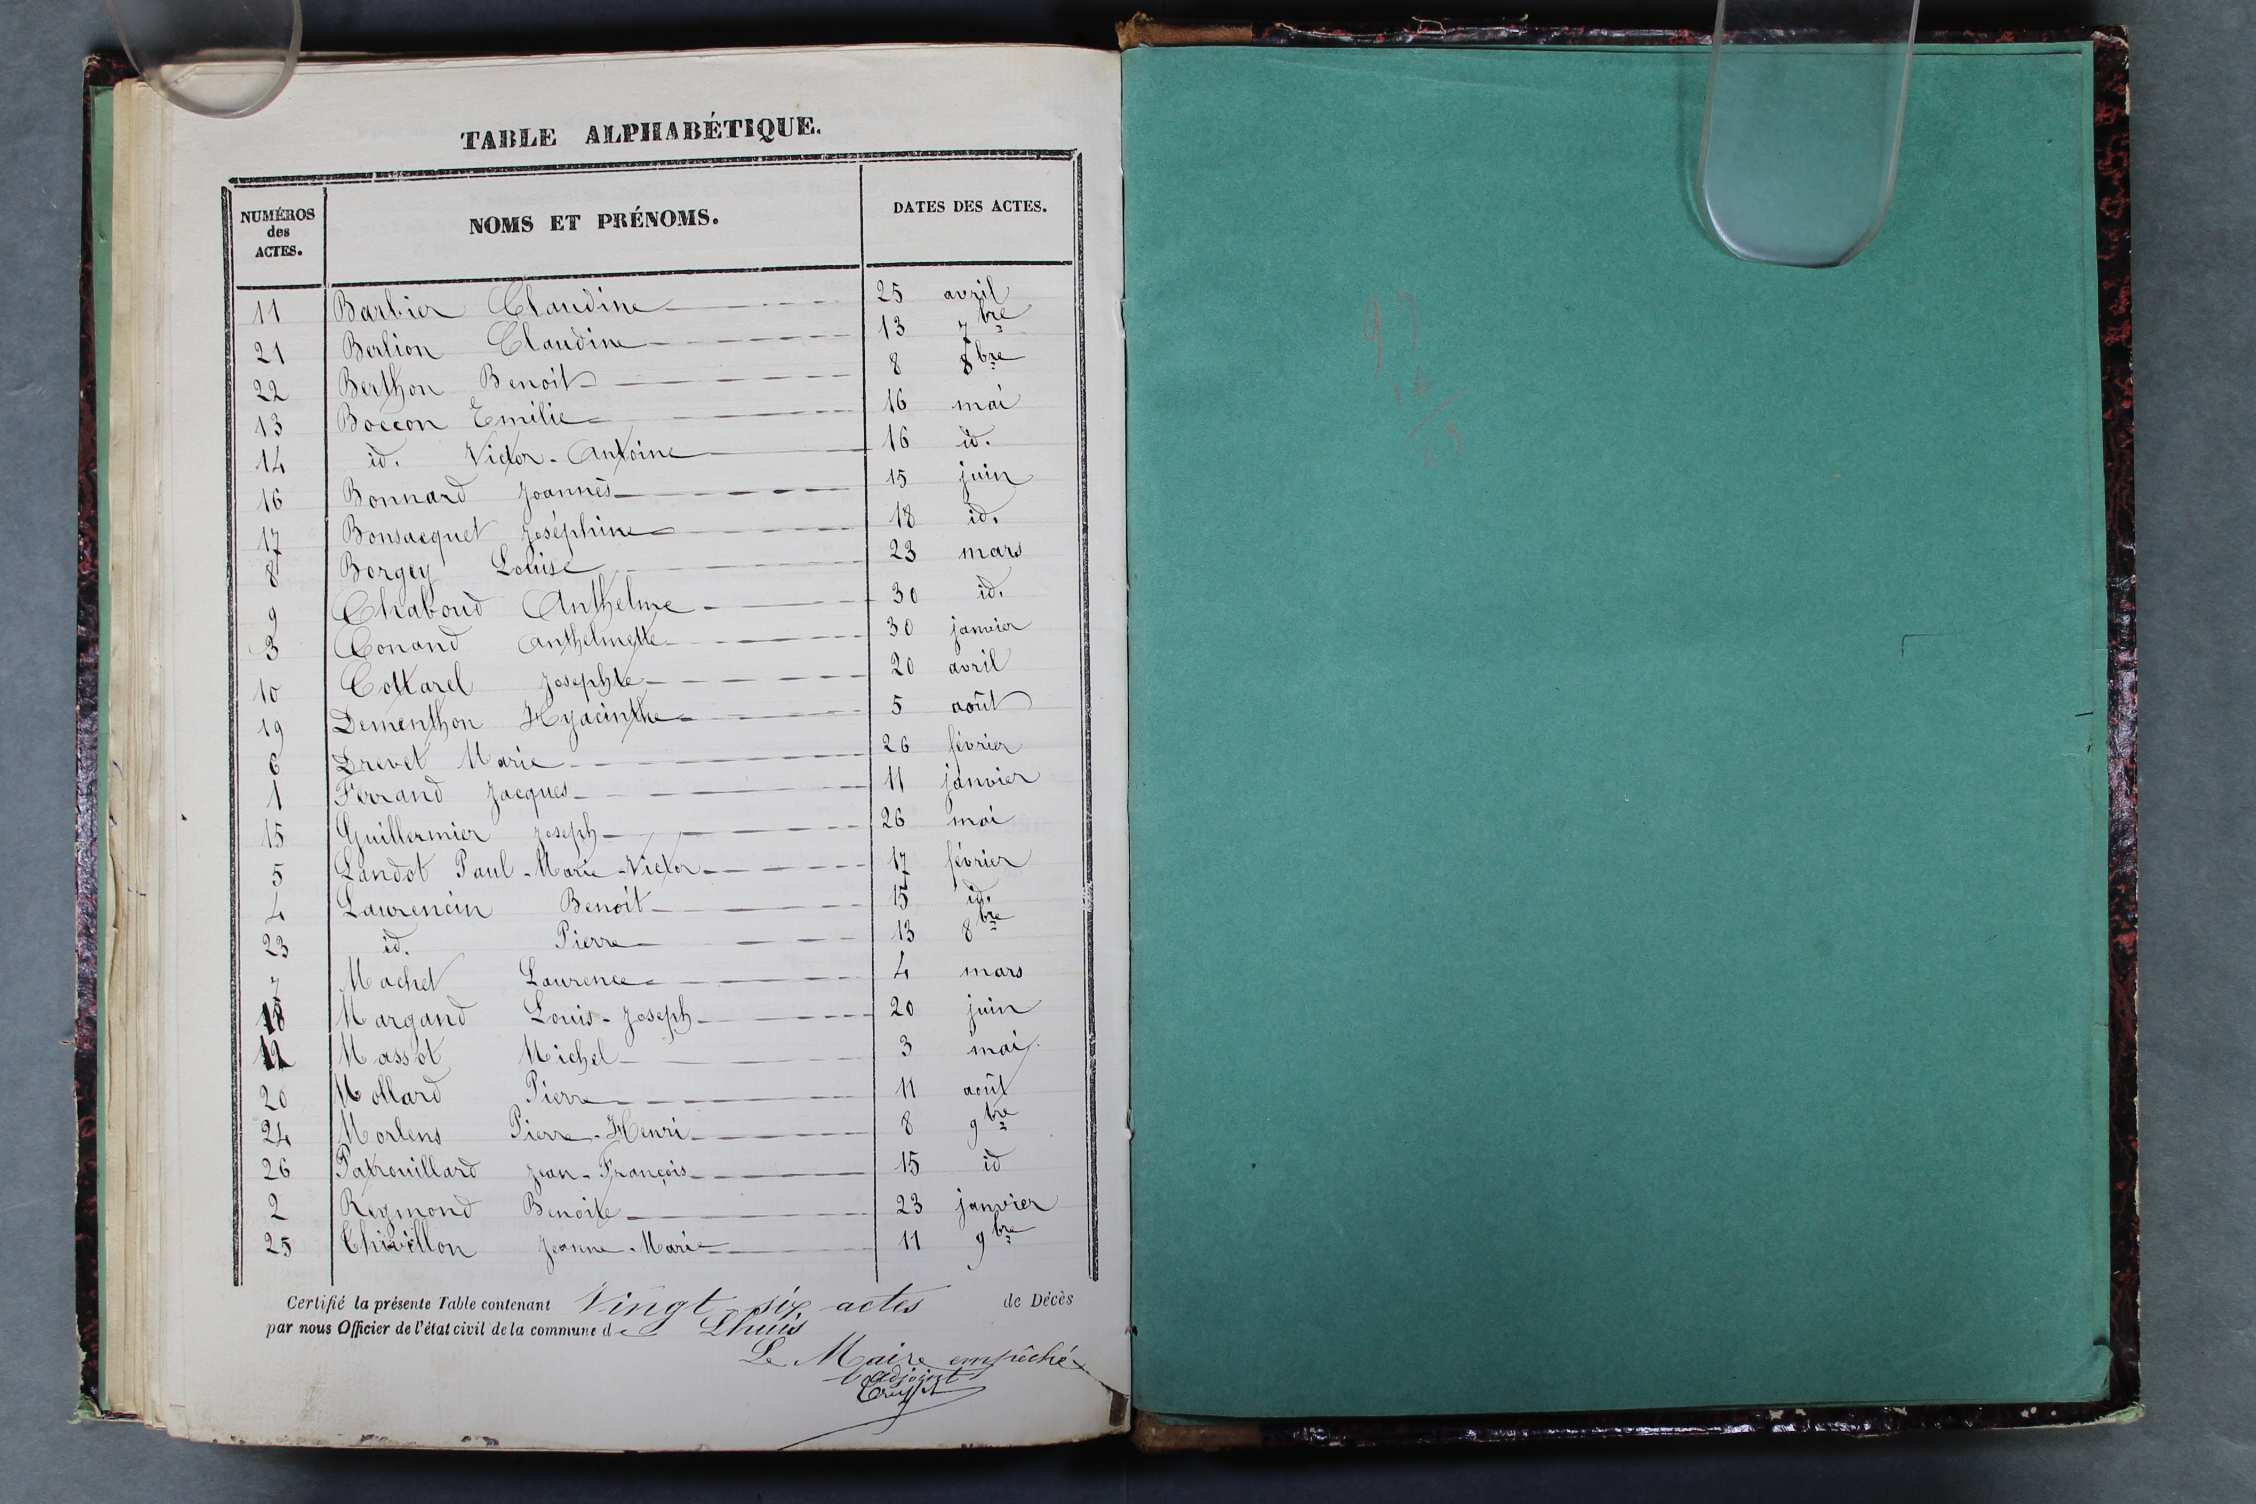 TABLE ALPHABÉTIQUE.
NUMÉROS des ACTES. NOMS ET PRÉNOMS. DATES DES ACTES.
11 Barbier Claudine 25 avril
21 Berlion Claudine 13 7bre
22 Berthon Benoit 8 8bre
13 Boccon Emilie 16 mai
14 id. Victor-Antoine 16 id.
16 Bonnard Joannès 15 juin
17 Bonsacquet Joséphine 18 id.
8 Borgey Louise 23 mars
9 Chaboud Anthelme 30 id.
3 Conand Anthelmette 30 janvier
10 Cottarel Josephte 20 avril
19 Dementhon Hyacinthe 5 août
6 Drevet Marie 26 février
1 Ferrand Jacques 11 janvier
15 Guillermier Joseph 26 mai
5 Landot Paul-Marie-Victor 17 février
4 Laurencin Benoit 15 id.
23 id. Pierre 13 8bre
7 Machet Laurence 4 mars
18 Margand Louis-Joseph 20 juin
12 Massot Michel 3 mai
20 Mollard Pierre 11 août
24 Morlens Pierre-Henri 8 9bre
26 Patrouillard Jean-François 15 id
2 Reymond Benoite 23 janvier
25 Thivillon Jeanne-Marie 11 9bre
Certifié la présente Table contenant Vingt six actes de Décès
par nous Officier de l'état civil de la commune de Lhuis
Le Maire empêché
l'adjoint
97